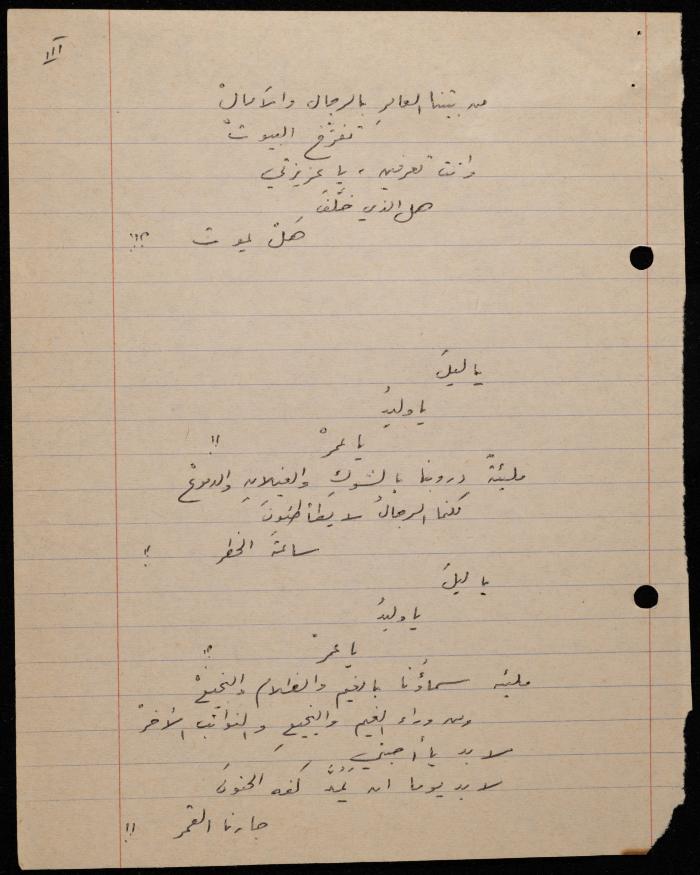 III
من بيتنا العامرِ بالرجال والآمالْ
تفرّخ البيوتْ
وانت تعرفين ، يا عزيزتي
هل الذي خلَّفَ
هَلْ يموت ؟!!
يا ليلَ
يا وليدُ
يا عمرْ !!
مليئةٌ دروبنا بالشوكِ والغيلانِ والدموعْ
لكنما الرجالُ لا يطأطئونَ
ساعةَ الخطر !؟
يا ليلَ
يا وليدُ
يا عمرْ !؟
مليئه سماؤُنا بالغيم والظلام والنجيعْ
ومن وراء الغيم والنجيعِ والنوائب الأخرْ
لا بد يا أحبتي
لا بد يوما ان يَمُدَّ كفه الحنونَ
جارنا القمر !!